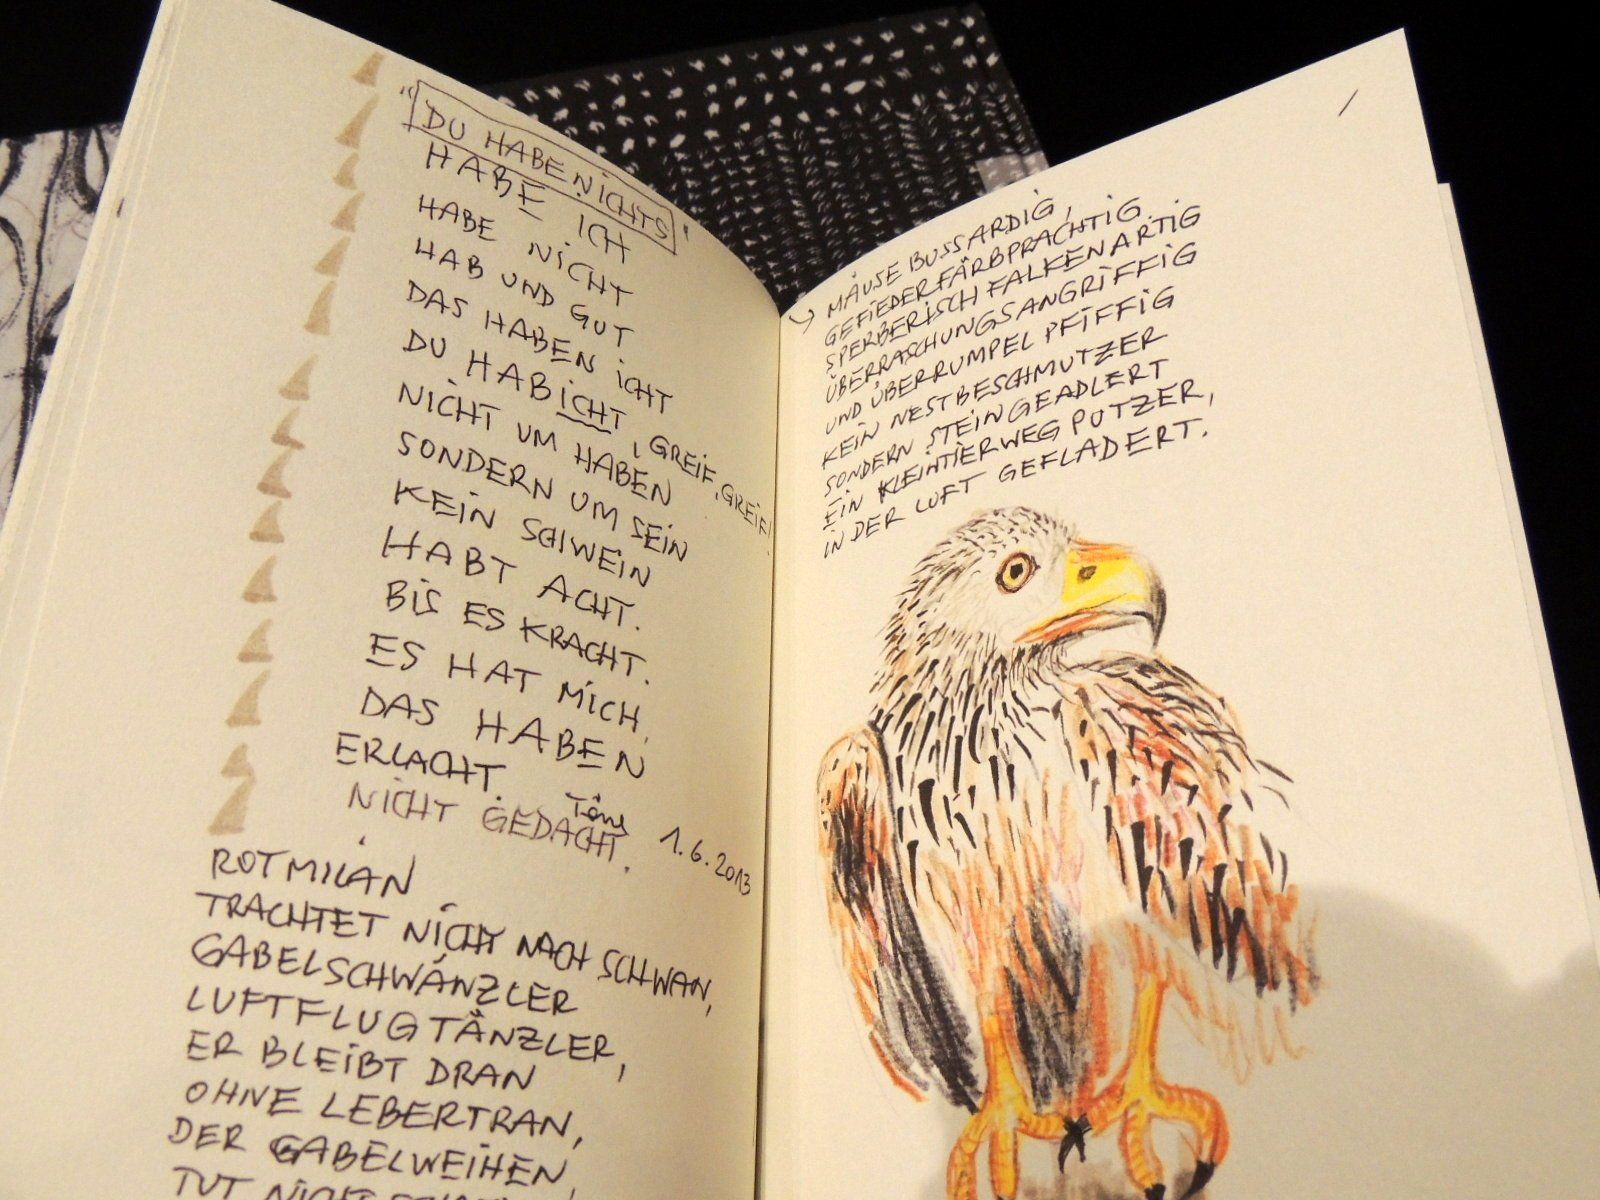 "DU HABENICHTS"
HABE ICH
HABE NICHT
HAB UND GUT
DAS HABEN ICHT
DU HABICHT, GREIF, GREIF!
NICHT UM HABEN
SONDERN UM SEIN
KEIN SCHWEIN
HABT ACHT.
BIS ES KRACHT.
ES HAT MICH,
DAS HABEN
ERLACHT.
NICHT GEDACHT.
1.6.2013
ROTMILAN
TRACHTET NICHT NACH SCHWAN,
GABELSCHWÄNZLER
LUFTFLUGTÄNZLER,
ER BLEIBT DRAN
OHNE LEBERTRAN,
DER GABELWEIHEN,
TUT NICHT
MÄUSEBUSSARDIG,
GEFIEDERFÄRBPRÄCHTIG
SPERBERISCH FALKENARTIG
ÜBERRASCHUNGSANGRIFFIG
UND ÜBERRUMPELPFIFFIG
KEIN NESTBESCHMUTZER
SONDERN STEINGEADLERT
EIN KLEINTIERWEGPUTZER,
IN DER LUFT GEFLADERT.